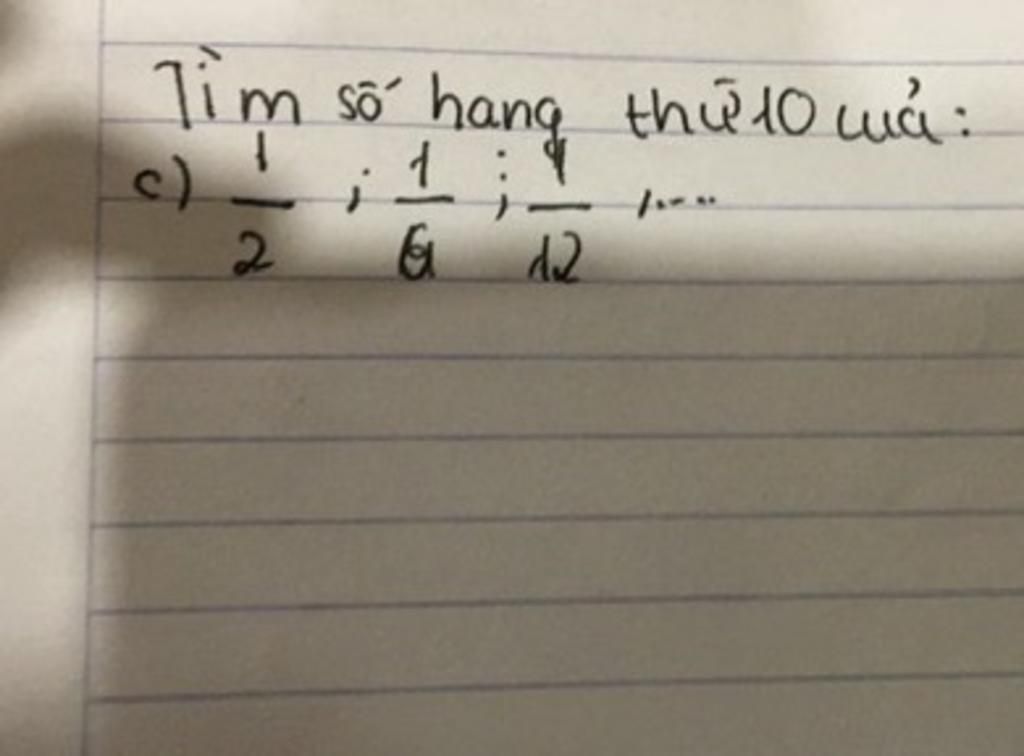 Tìm số hang thứ 10 của:
c) 1/2 ; 1/6 ; 1/12 ,....